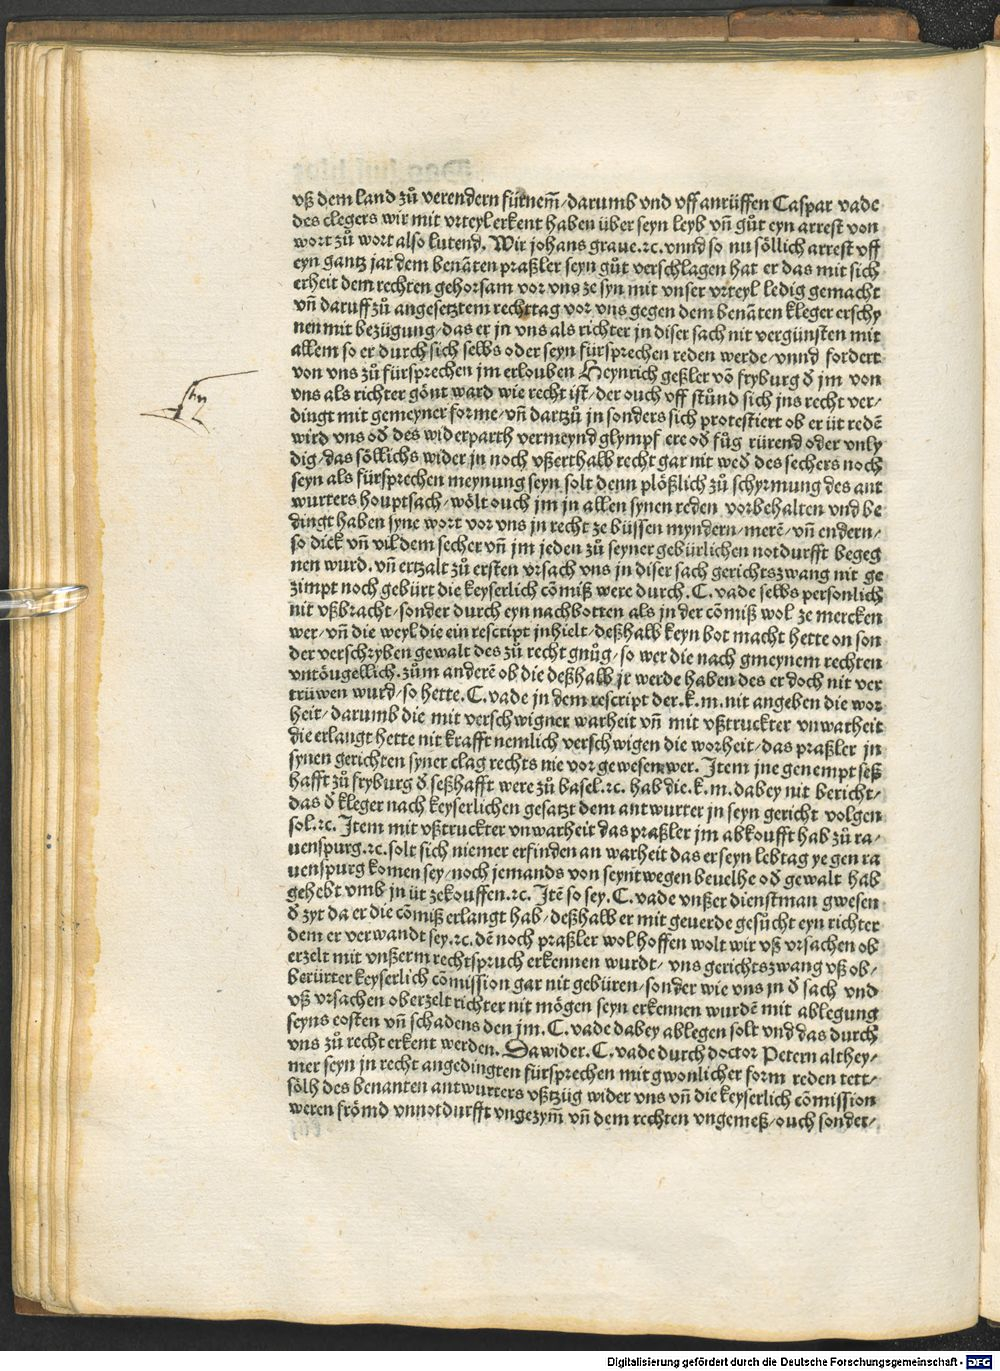 vß dem land zů verendern fürnem̄/darumb vnd vff anrüffen Caspar vade
des clegers wir mit vrteyl erkent haben über seyn leyb vn̄ gůt eyn arrest von
wort zů wort also lutend. Wir johans graue.ꝛc.vnnd so nu söllich arrest vff
eyn gantz jar dem benāten praßler seyn gůt verschlagen hat er das mit sich
erheit dem rechten gehorsam vor vns ze syn mit vnser vrteyl ledig gemacht
vn̄ daruff zů angesetztem rechttag vor vns gegen dem benāten kleger erschy
nen mit bezügung/das er jn vns als richter jn diser sach nit vergünsten mit
allem so er durch sich selbs oder seyn fürsprechen reden werde/vnnd fordert
von vns zů fürsprechen jm erlouben Heynrich geßler vō fryburg đ jm von
vns als richter gönt ward wie recht ist/der ouch vff stůnd sich jns recht ver/
dingt mit gemeyner forme/vn̄ dartzů jn sonders sich protestiert ob er üt redē
wird vns ođ des widerparth vermeynd glympf ere ođ fůg rürend oder vnly
dig/das söllichs wider jn noch vßerthalb recht gar nit weđ des sechers noch
seyn als fürsprechen meynung seyn solt denn plößlich zů schyrmung des ant
wurters houptsach/wölt ouch jm jn allen synen reden vorbehalten vnd be
dingt haben syne wort vor vns jn recht ze büssen myndern/merē/vn̄ endern/
so dick vn̄ vil dem secher vn̄ jm jeden zů seyner gebürlichen notdurfft begeg
nen wurd.vn̄ ertzalt zů ersten vrsach vns jn diser sach gerichtszwang nit ge
zimpt noch gebürt die keyserlich cōmiß were durch.C.vade selbs personlich
nit vßbracht/sonder durch eyn nachbotten als jn der cōmiß wol ze mercken
wer/vn̄ die weyl die ein rescript jnhielt/deßhalb keyn bot macht hette on son
der verschryben gewalt des zů recht gnůg/so wer die nach gmeynem rechten
vntöugellich.zům anderē ob die deßhalb jr werde haben des er doch nit ver
trüwen wurd/so hette.C.vade jn dem rescript der.k.m.nit angeben die wor
heit/darumb die mit verschwigner warheit vn̄ mit vßtruckter vnwarheit
die erlangt hette nit krafft nemlich verschwigen die worheit/das praßler jn
synen gerichten syner clag rechts nie vor gewesen wer. Item jne genempt seß
hafft zů fryburg đ seßhafft were zů basel.ꝛc. hab die.k.m.dabey nit bericht/
das đ kleger nach keyserlichen gesatzt dem antwurter jn seyn gericht volgen
sol.ꝛc. Item mit vßtruckter vnwarheit das praßler jm abkoufft hab zů ra/
uenspurg.ꝛc.solt sich niemer erfinden an warheit das er seyn lebtag ye gen ra
uenspurg komen sey/noch jemands von seynt wegen beuelhe ođ gewalt hab
gehebt vmb jn üt zekouffen.ꝛc. Itē so sey.C.vade vnßer dienstman gwesen
đ zyt da er die cōmiß erlangt hab/deßhalb er mit geuerde gesůcht eyn richter
dem er verwandt sey.ꝛc.dē noch praßler wol hoffen wolt wir vß vrsachen ob
erzelt mit vnßerm rechtspruch erkennen wurdt/vns gerichtszwang vß ob/
berürter keyserlich cōmission gar nit gebüren/sonder wie vns jn đ sach vnd
vß vrsachen oberzelt richter nit mögen seyn erkennen wurdē mit ablegung
seyns costen vn̄ schadens den jm.C.vade dabey ablegen solt vnd das durch
vns zů recht erkent werden. Dawider.C.vade durch doctor Petern althey/
mer seyn jn recht angedingten fürsprechen mit gwonlicher form reden tett/
sölh des benanten antwurters vßtzüg wider vns vn̄ die keyserlich cōmission
weren frömd vnnotdurfft vngezym̄ vn̄ dem rechten vngemeß/ouch sonder/
Digitalisierung gefördert durch die Deutsche Forschungsgemeinschaft - DFG